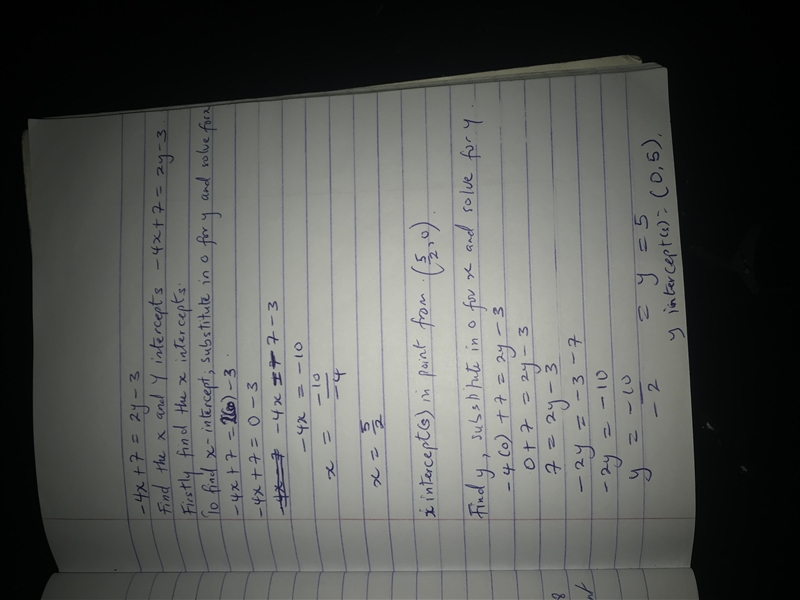 -4x + 7 = 2y - 3
Find the x and y intercepts -4x + 7 = 2y - 3
Firstly find the x intercepts.
To find x-intercept, substitute in 0 for y and solve for x
-4x + 7 = 2(0) - 3.
-4x + 7 = 0 - 3
-4x - 7 -4x = 7 - 3
-4x = -10
x = -10/-4
x = 5/2
x intercept(s) in point from. (5/2, 0).
Find y, substitute in 0 for x and solve for y.
-4(0) + 7 = 2y - 3
0 + 7 = 2y - 3
7 = 2y - 3
-2y = -3 - 7
-2y = -10
y = -10/-2 = y = 5
y intercept(s): (0, 5).
8